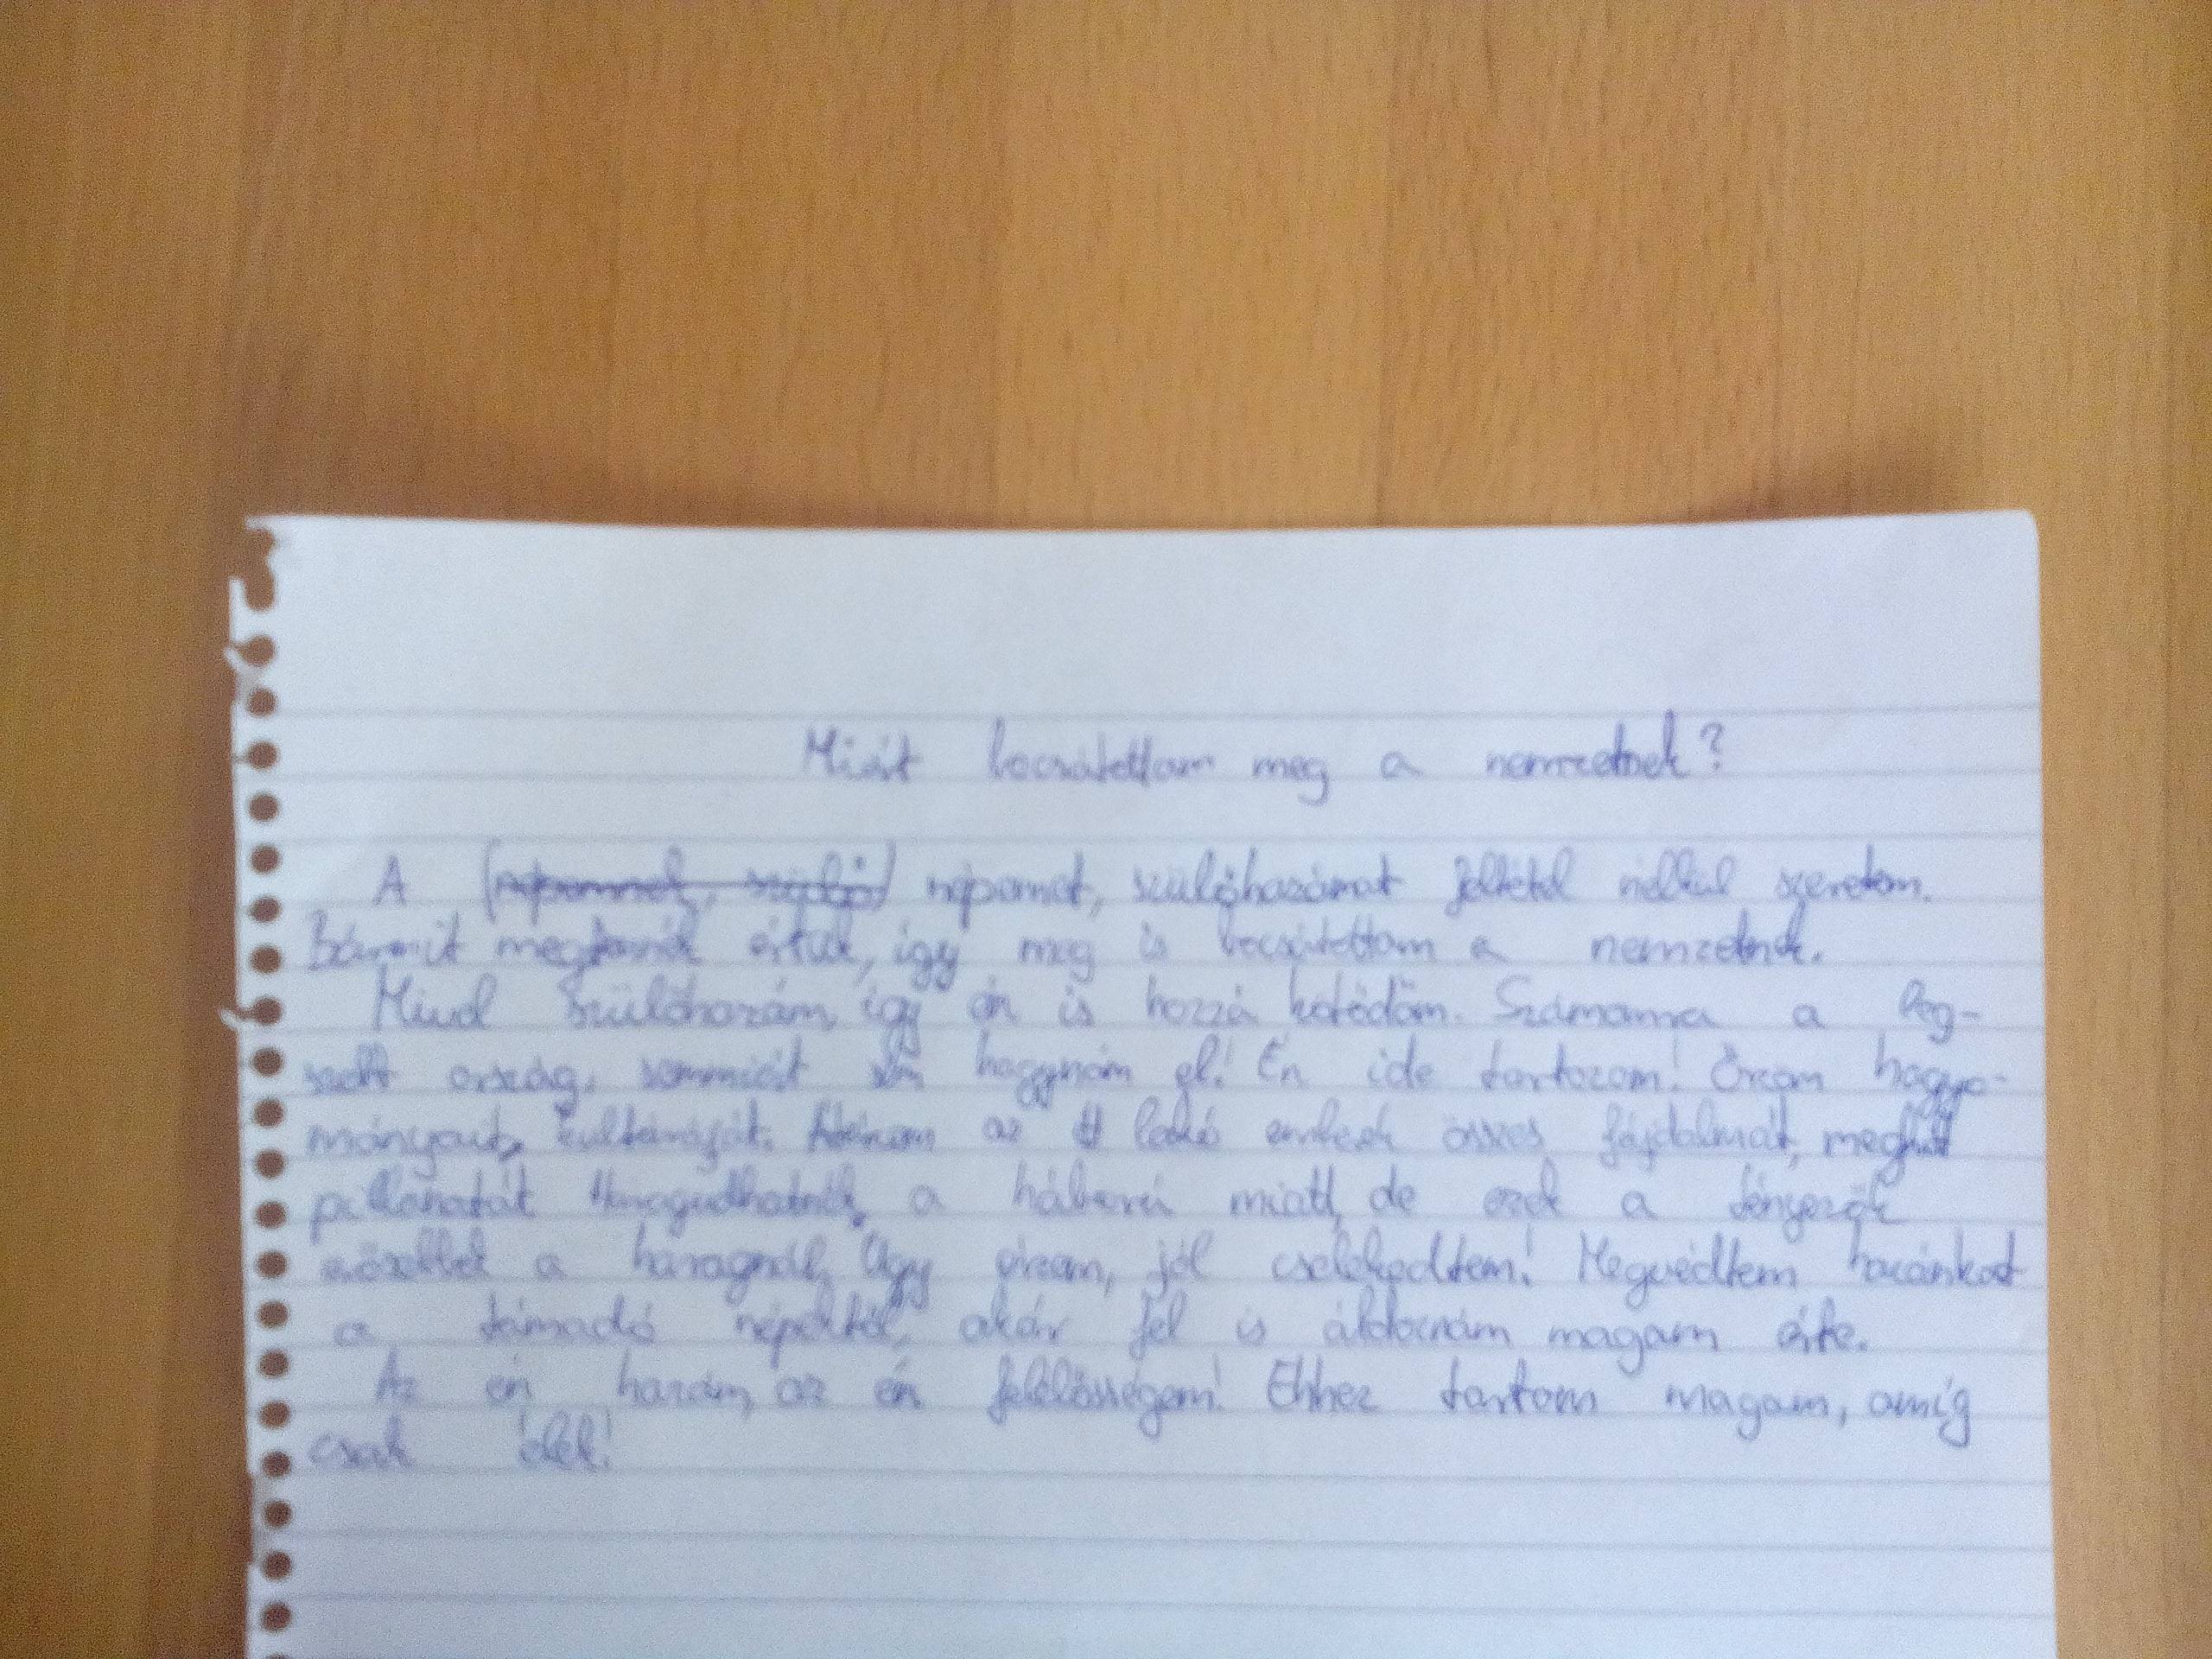 Miért bocsátottam meg a nemzetnek?
A (népemnek, szülő) népemet, szülőhazámat feltétel nélkül szeretem.
Bármit megtennék értük, így meg is bocsátottam a nemzetnek.
Mivel szülőhazám, így én is hozzá kötődöm. Számomra a leg-
szebb ország, semmiért sem hagynám el! Én ide tartozom! Őrzöm hagyo-
mányait, kultúráját. Átérzem az itt lakó emberek összes fájdalmát,
pillanatát. Haragudhatnék a háború miatt, de ezek a tényezők
erősebbek a haragnál. Úgy érzem, jól cselekedtem! Megvédtem hazánkat
a támadó népektől, akár fel is áldoznám magam érte.
Az én hazám, az én felelősségem! Ehhez tartom magam, amíg
csak élek!